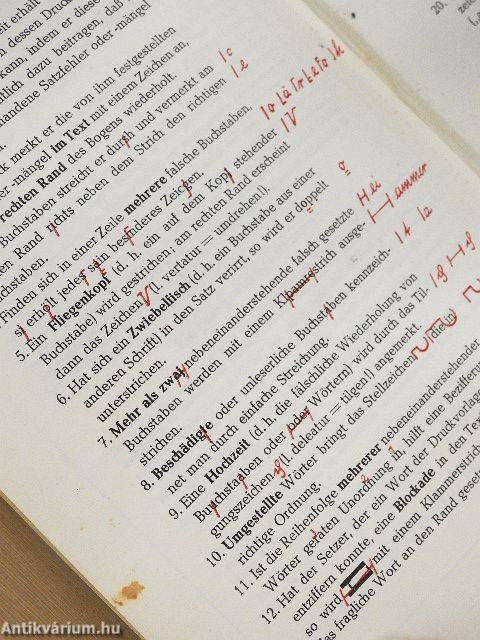 eit erhält
n dessen Druck
kann, indem er diese
ntlich dazu beitragen, daß
handene Satzfehler oder -mängel
20.
zeic
k merkt er die von ihm festgestellten
er -mängel im Text mit einem Zeichen an,
rechten Rand des Bogens wiederholt.
Buchstaben streicht er durch und vermerkt am
en Rand nichts neben dem Strich den richtigen
uchstaben.
Finden sich in einer Zeile mehrere falsche Buchstaben,
so erhält jedes sein besonderes Zeichen.
5. Ein Fliegenkopf (d. h. ein auf dem Kopf stehender
Buchstabe) wird gestrichen; am rechten Rand erscheint
dann das Zeichen V (l. vertatur = umdrehen!).
6. Hat sich ein Zwiebelfisch (d. h. ein Buchstabe aus einer
anderen Schrift) in den Satz verirrt, so wird er doppelt
unterstrichen.
7. Mehr als zwei nebeneinanderstehende falsch gesetzte
Buchstaben werden mit einem Klammerstrich ausge-
strichen.
8. Beschädigte oder unleserliche Buchstaben kennzeich-
net man durch einfache Streichung.
9. Eine Hochzeit (d. h. die fälschliche Wiederholung von
Buchstaben oder Wörtern) wird durch das Til-
gungszeichen (l. deleatur = tilgen!) angemerkt.
10. Umgestellte Wörter bringt das Stellzeichen (die in)
richtige Ordnung.
11. Ist die Reihenfolge mehrerer nebeneinanderstehender
Wörter geraten Unordnung in, hilft eine Bezifferu
12. Hat der Setzer, der ein Wort der Druckvorlage
entziffern konnte, eine Blockade in den Text
so wird mit einem Klammerstrich
das fragliche Wort an den Rand gesetz
Antikvárium.hu